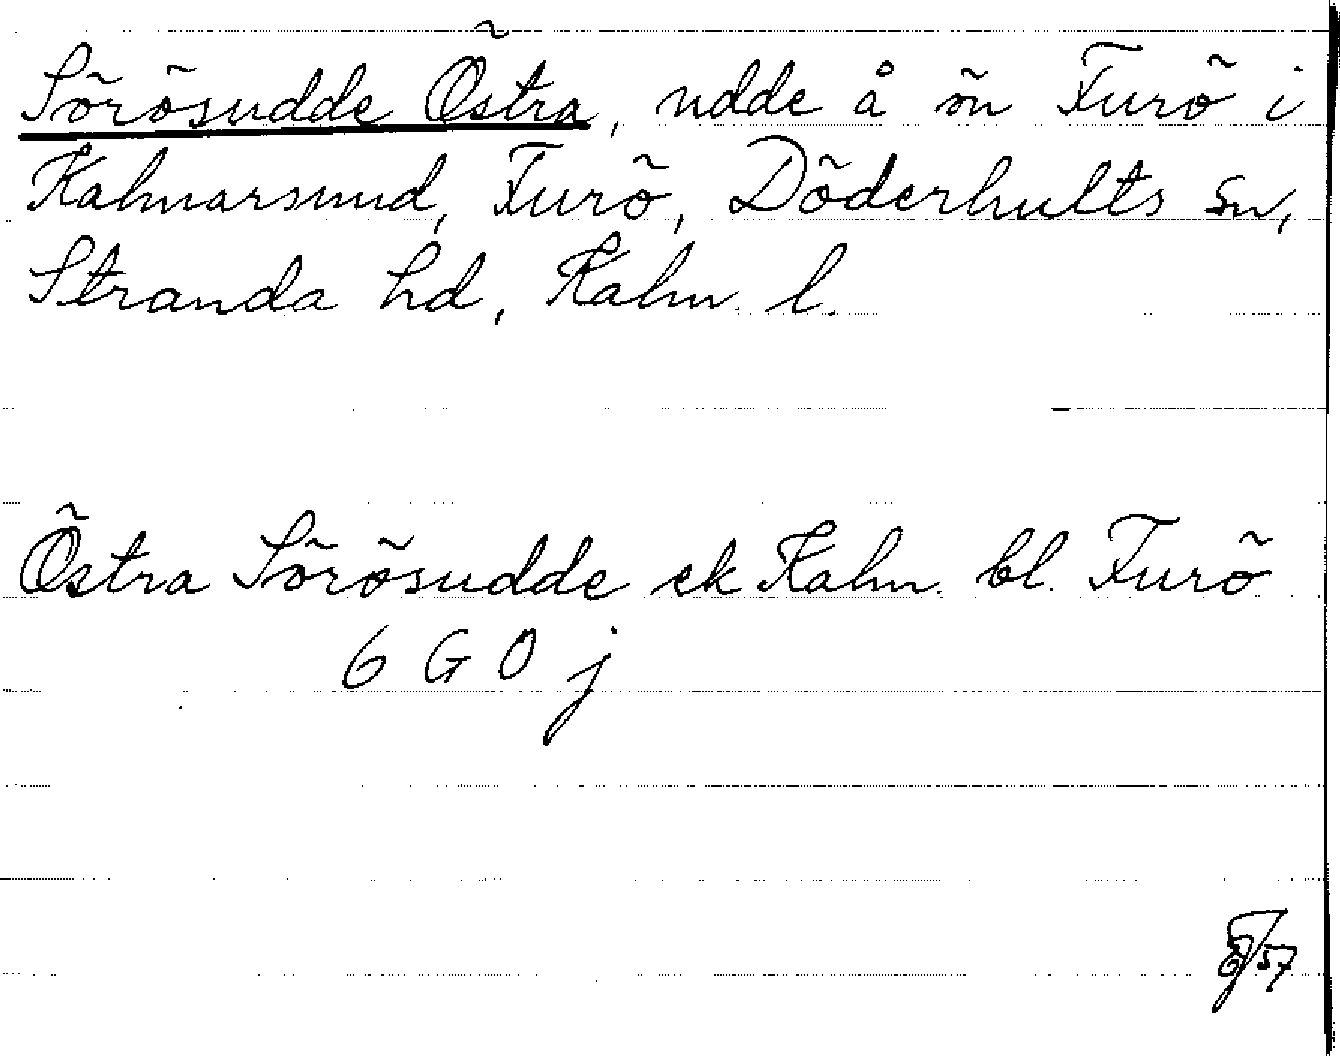 Sörösudde Östra, udde å ön Furö i
Kalmarsund, Furö, Döderhults sn,
Stranda hd, Kalm. l.
Östra Sörösudde ek Kalm. bl. Furö
6 G 0 j
57